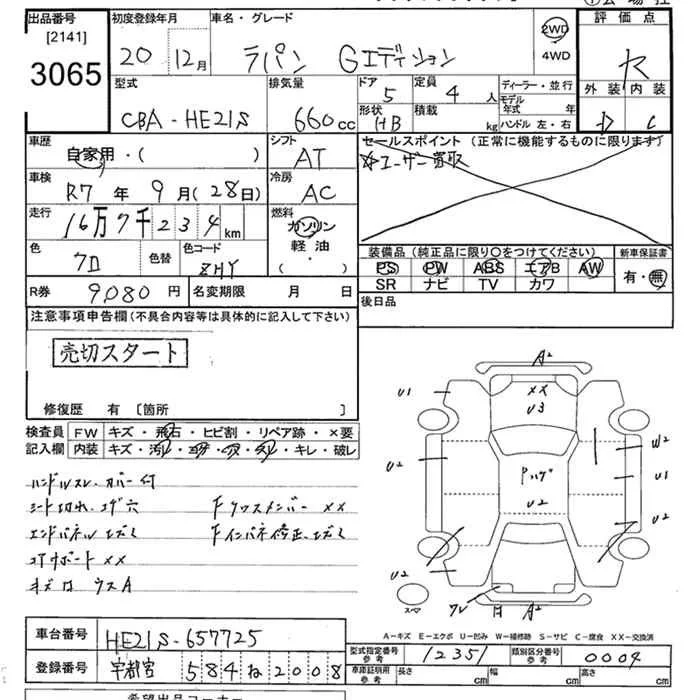 出品番号 初度登録年月 車名・グレード 評価点
[2141] 3065
20 12月 ラパン Gエディション 2WD 4WD
型式 排気量 ドア 定員 ディーラー・並行 外装 内装
CBA-HE21S 660cc 5 4人 モデル年式 年
形状 積載 HB kg ハンドル 左・右 D C
車歴 シフト セールスポイント(正常に機能するものに限ります)
自家用・( ) AT ☆ユーザー買取
車検 冷房
R7年9月(28日) AC
走行 燃料
16万7千234km ガソリン 軽油・( )
色 色替 色コード 装備品(純正品に限り○をつけてください) 新車保証書
クロ ZHY PS PW ABS エアB AW 有・無
SR ナビ TV カワ
R券 9,080円 名変期限 月 日 後日品
注意事項申告欄(不具合内容等は具体的に記入して下さい)
売切スタート
修復歴 有 [箇所 ]
検査員 FW キズ・飛石・ヒビ割・リペア跡・×要
記入欄 内装 キズ・汚レ・コゲ・穴・スレ・キレ・破レ
ハンドルスレ、カバー付
シート切れ、コゲ穴 Fクロスメンバー XX
エンドパネル エガミ Fインパネ修正、エガミ
コアサポート XX
A2
U1 XX
U3
W2
U2 Pハゲ U1
U2 U2
U2
スペア A2
A-キズ E-エクボ U-凹み W-補修跡 S-サビ C-腐食 XX-交換済
車台番号 HE21S-657725
型式指定番号 参考 12351 類別区分番号 参考 0004
登録番号 宇都宮 584 ね 2008
車庫証明用 参考 長さ 幅 高さ
希望出品コーナー